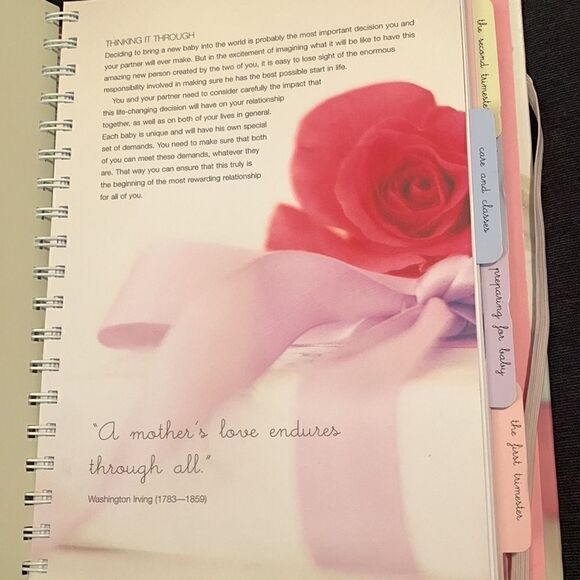 THINKING IT THROUGH
Deciding to bring a new baby into the world is probably the most important decision you and
your partner will ever make. But in the excitement of imagining what it will be like to have this
amazing new person created by the two of you, it is easy to lose sight of the enormous
responsibility involved in making sure he has the best possible start in life.
You and your partner need to consider carefully the impact that
this life-changing decision will have on your relationship
together, as well as on both of your lives in general.
Each baby is unique and will have his own special
set of demands. You need to make sure that both
of you can meet these demands, whatever they
are. That way you can ensure that this truly is
the beginning of the most rewarding relationship
for all of you.
"A mother's love endures
through all."
Washington Irving (1783—1859)
the second trimester
care and classes
preparing for baby
the first trimester